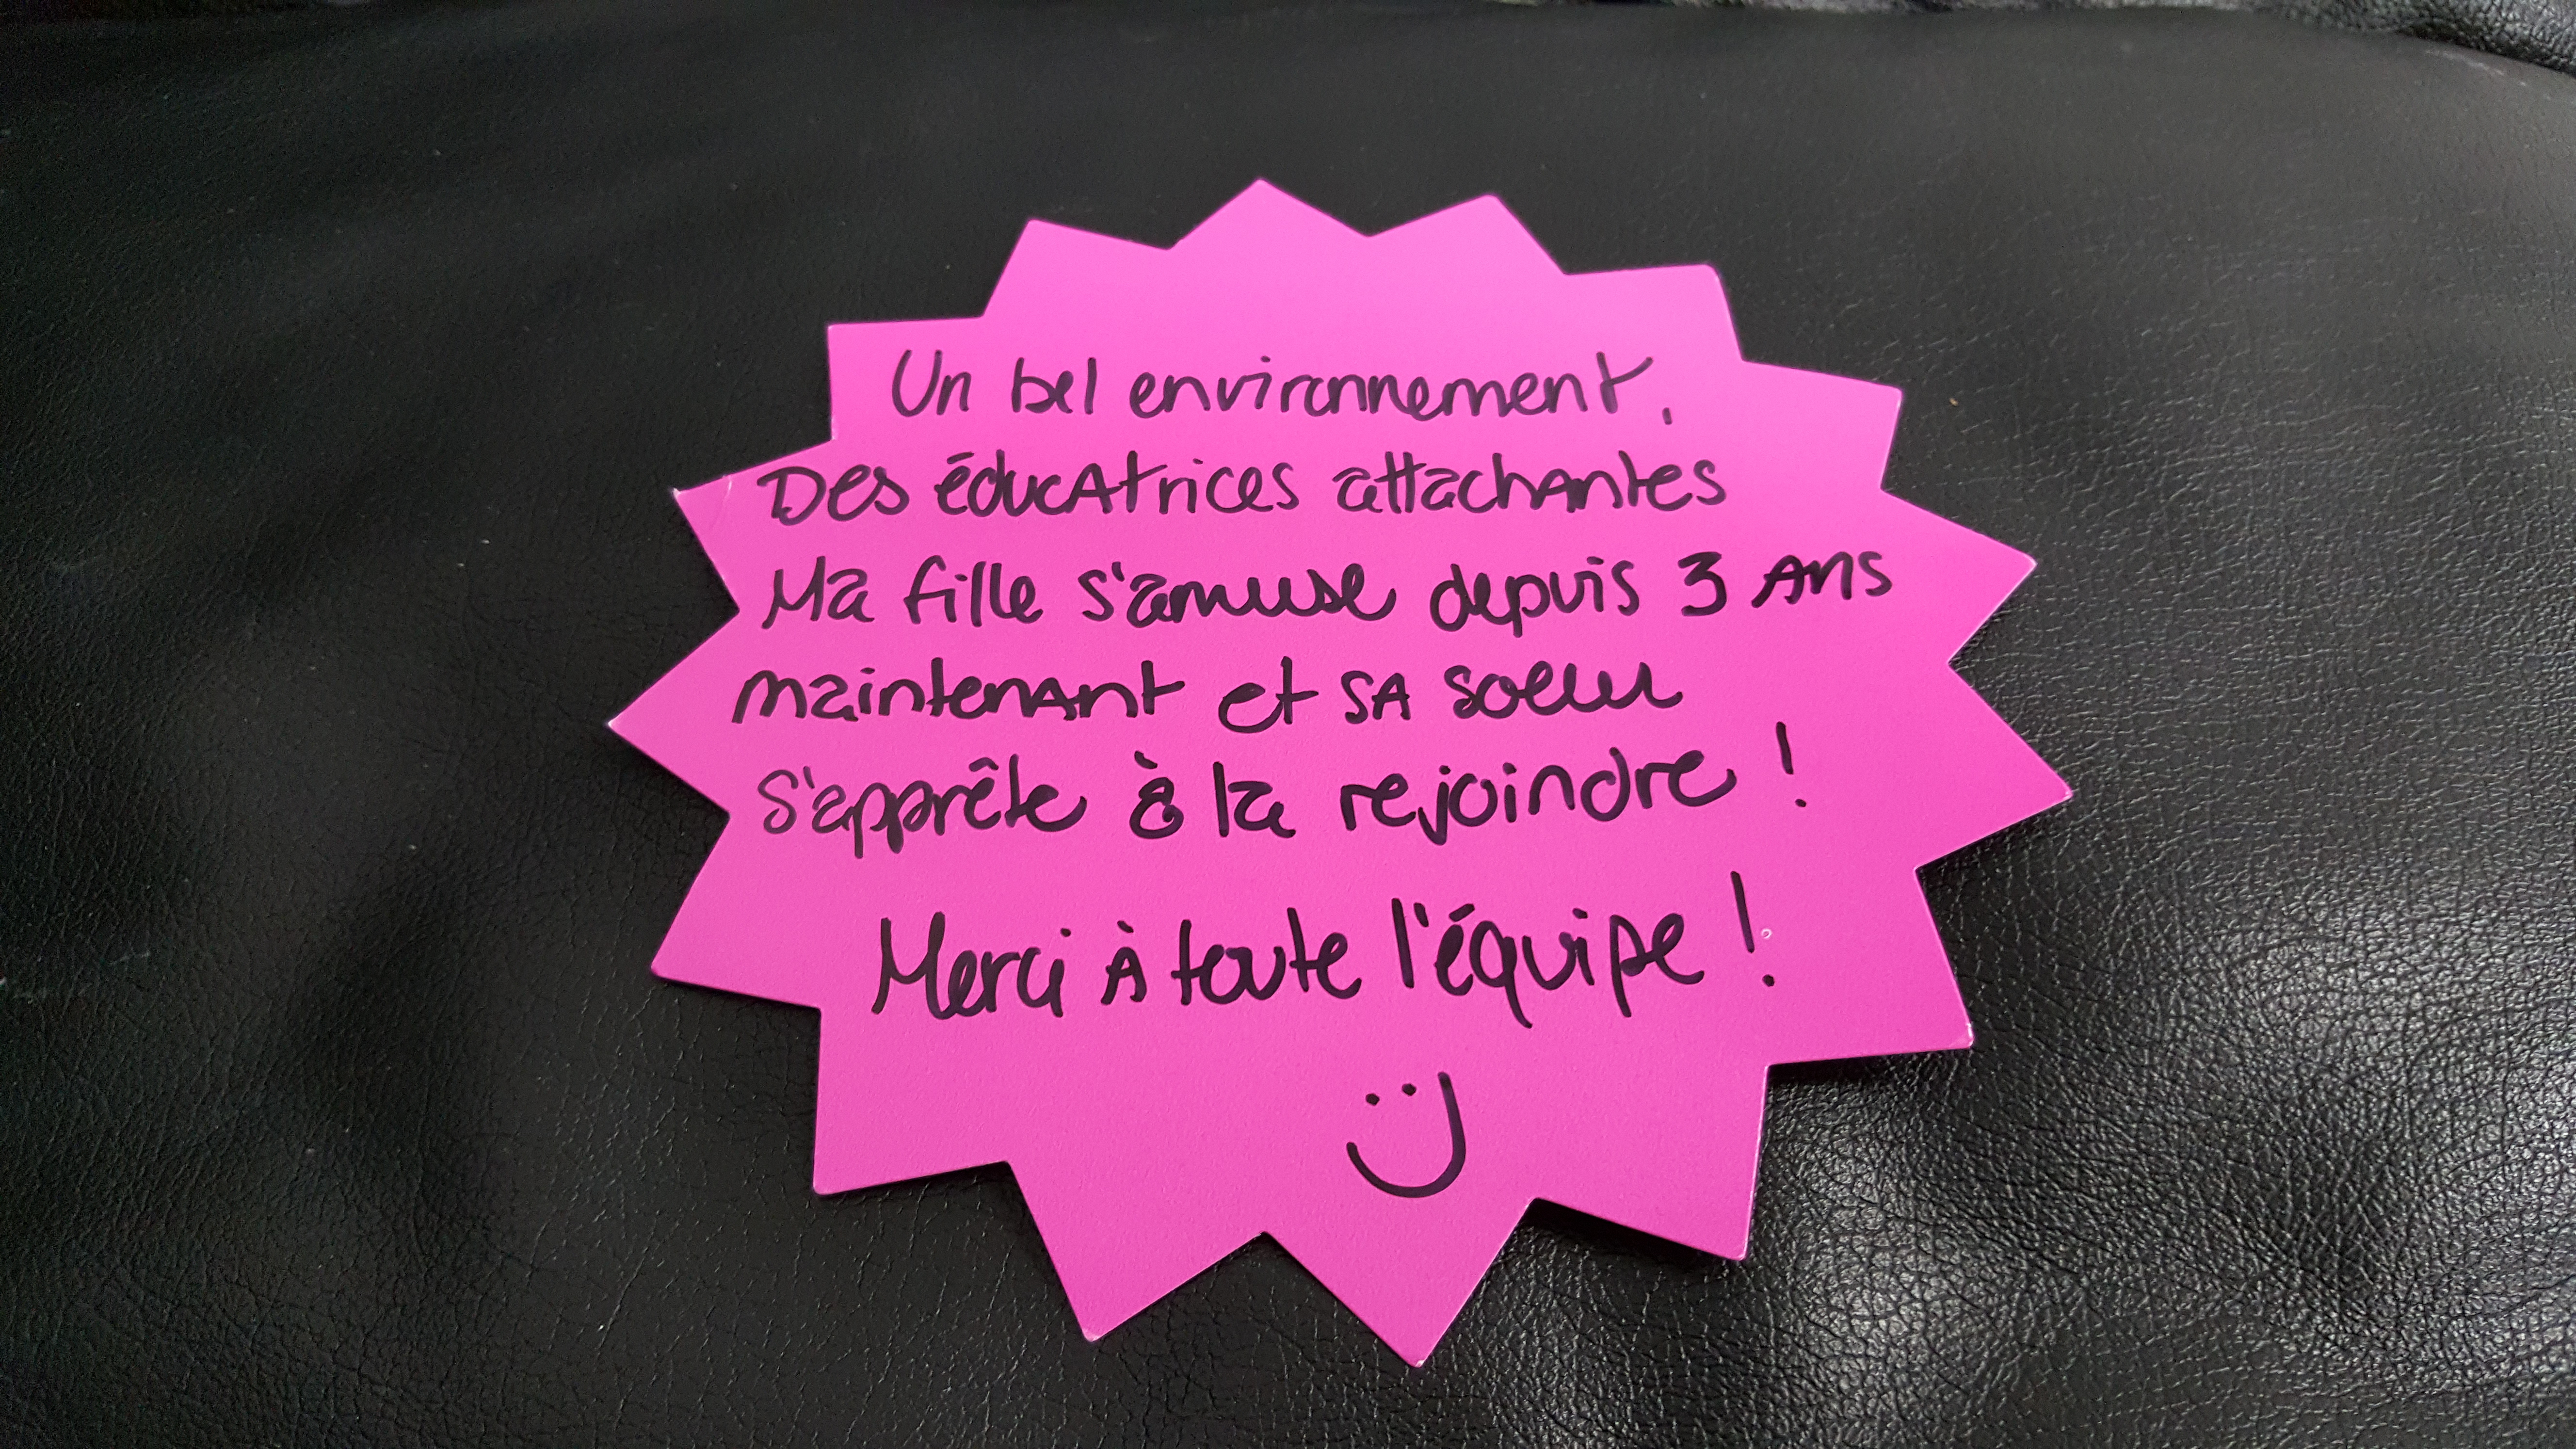 Un bel environnement,
Des éducatrices attachantes
Ma fille s'amuse depuis 3 ans
maintenant et sa soeur
s'apprête à la rejoindre !
Merci à toute l'équipe !